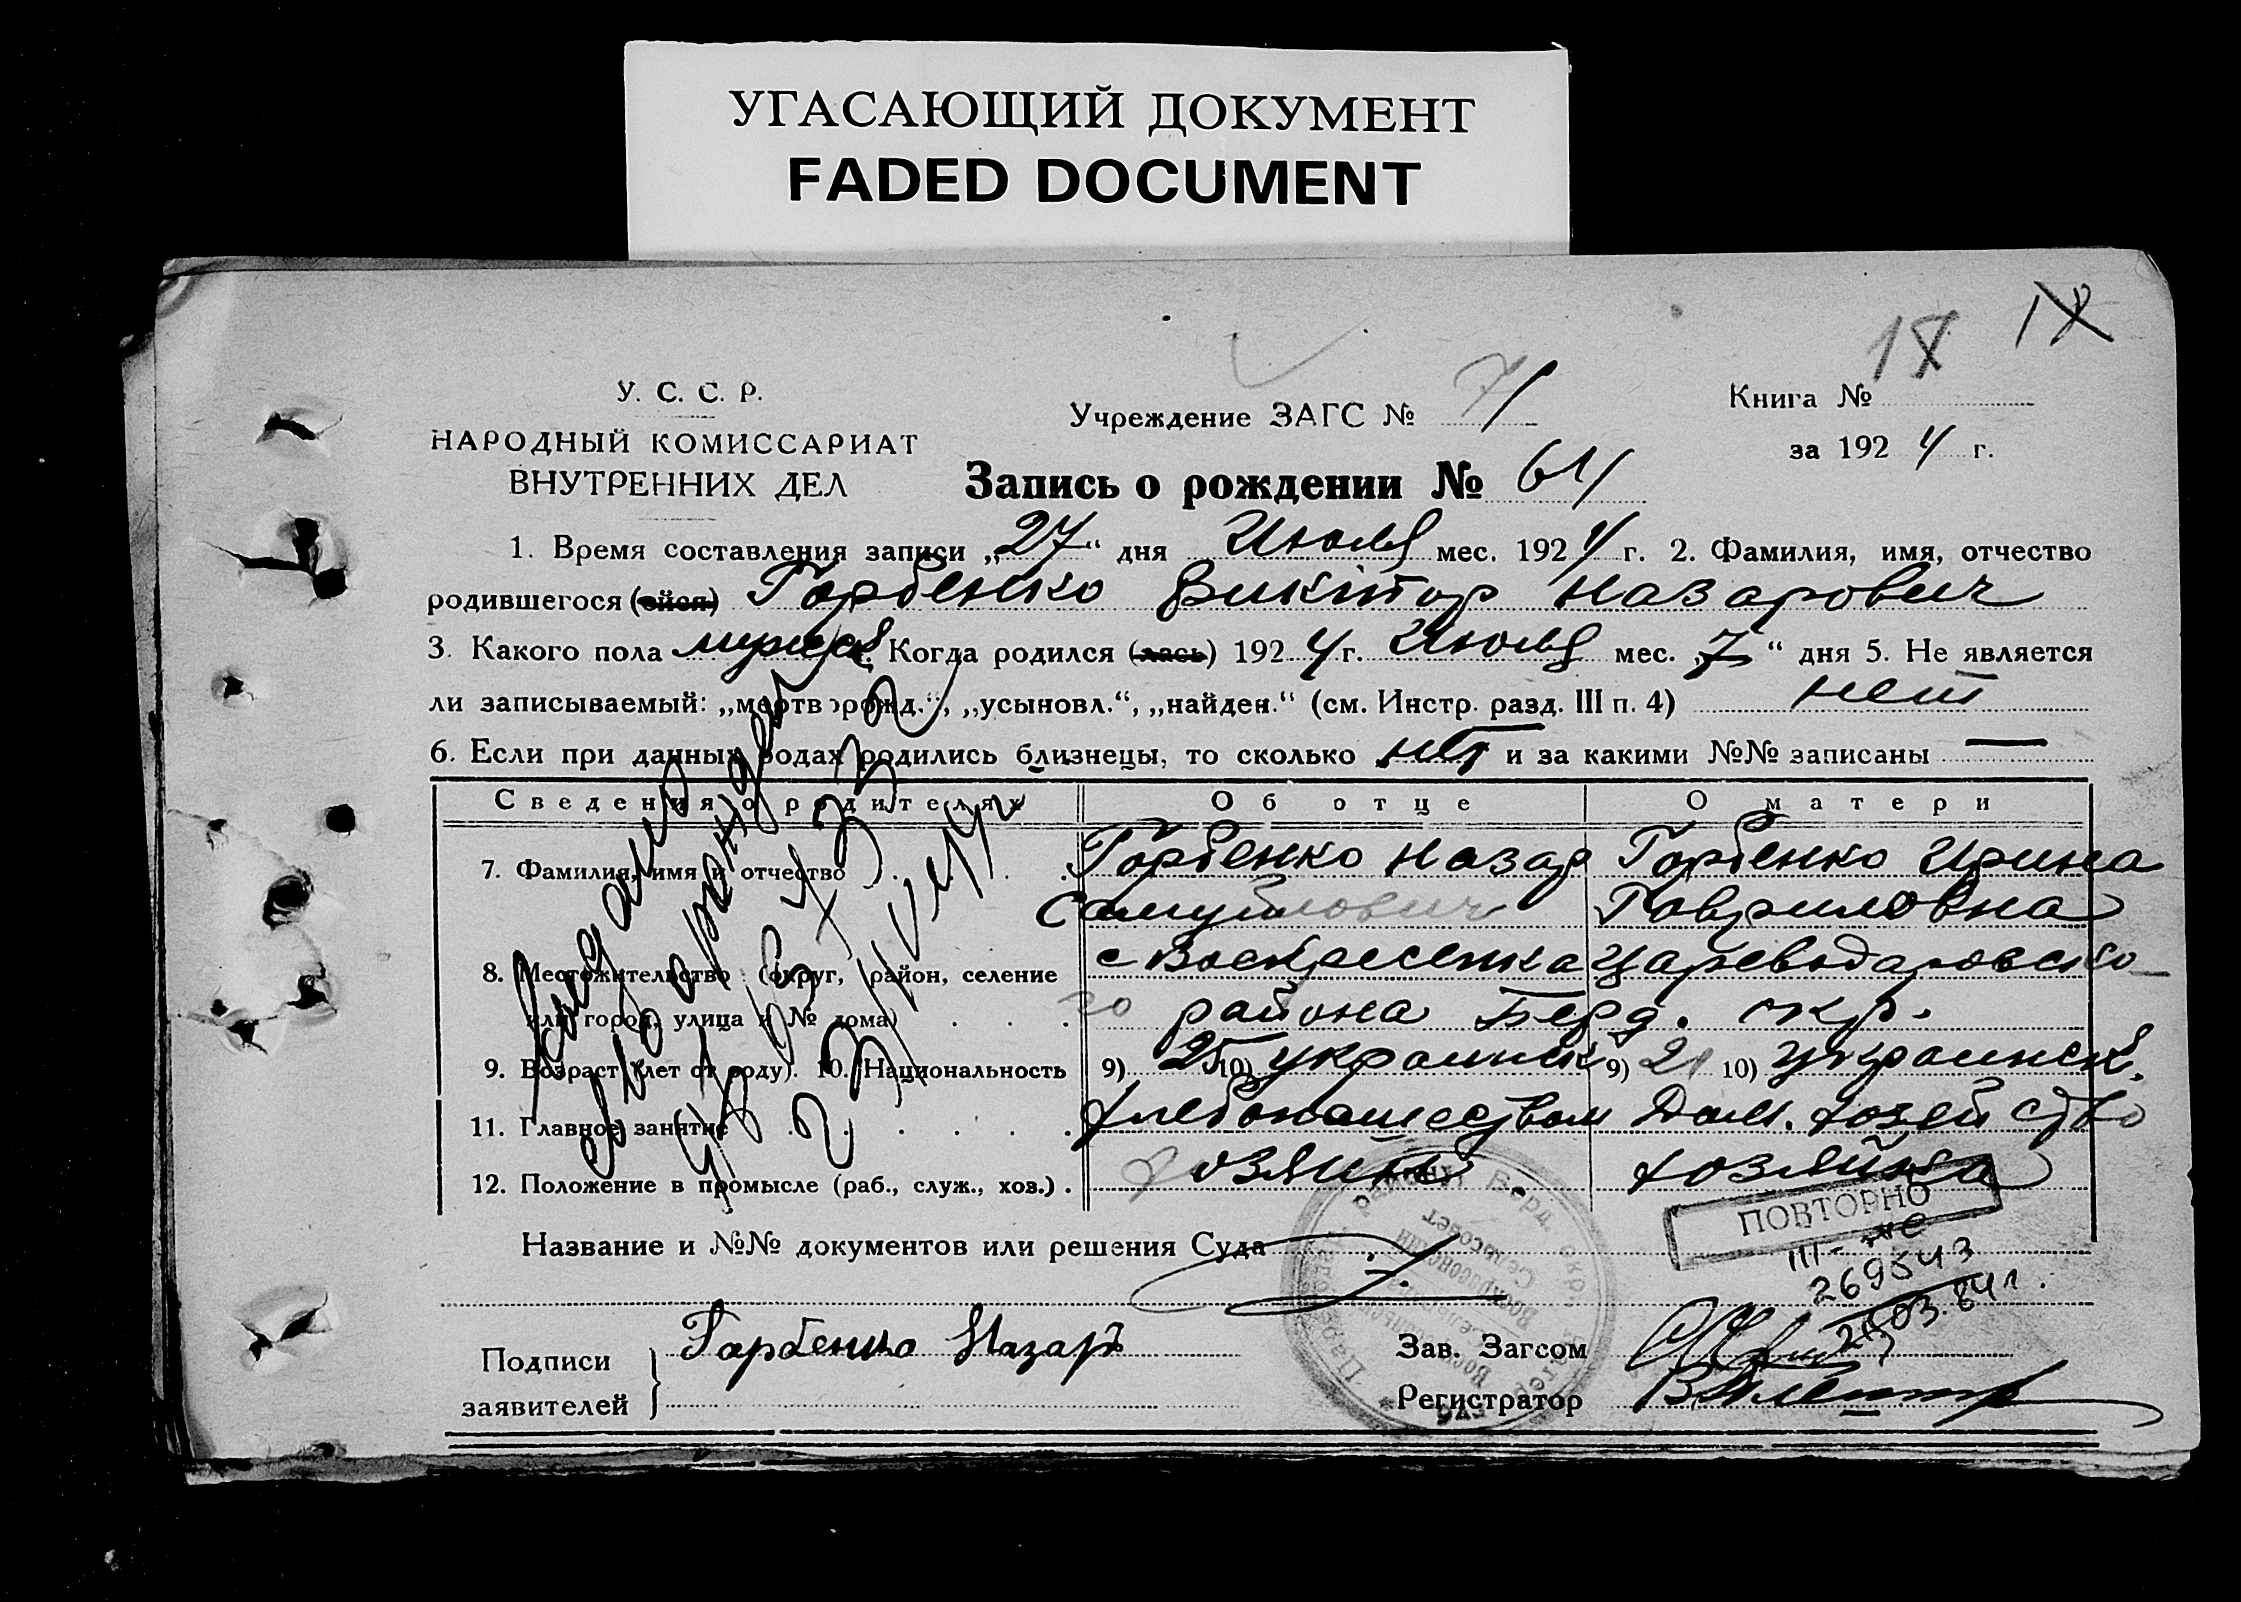 УГАСАЮЩИЙ ДОКУМЕНТ
FADED DOCUMENT
IX
IX
У. С. С. Р.
НАРОДНЫЙ КОМИССАРИАТ
ВНУТРЕННИХ ДЕЛ
Учреждение ЗАГС № 71
Книга №
за 1924 г.
Запись о рождении № 61
1. Время составления записи „27“ дня Июля мес. 1924 г. 2. Фамилия, имя, отчество
родившегося (ейся) Горбенко Виктор Назарович
3. Какого пола мужск. Когда родился (лась) 1924 г. Июля мес. „7“ дня 5. Не является
ли записываемый: „мертворожд.“, „усыновл.“, „найден.“ (см. Инстр. разд. III п. 4) нет
6. Если при данных родах родились близнецы, то сколько нет и за какими №№ записаны —
Сведения о родителях Об отце О матери
7. Фамилия, имя и отчество Горбенко Назар Горбенко Ирина
Самуйлович Гавриловна
8. Местожительство (округ, район, селение с Воскресенка Цареводаровско-
или город, улица и № дома) го района Берд. окр.
9. Возраст (лет от роду). 10. Национальность 9) 25 10) украинск 9) 21 10) украинск.
11. Главное занятие хлебопашеством Дом. хозейство
12. Положение в промысле (раб., служ., хоз.) хозяин хозяйка
Выдано
ПОВТОРНО
Название и №№ документов или решения Суда
III-ЖС
269543
03.84 г.
Подписи заявителей Горбенко Назаръ
Зав. Загсом
Регистратор